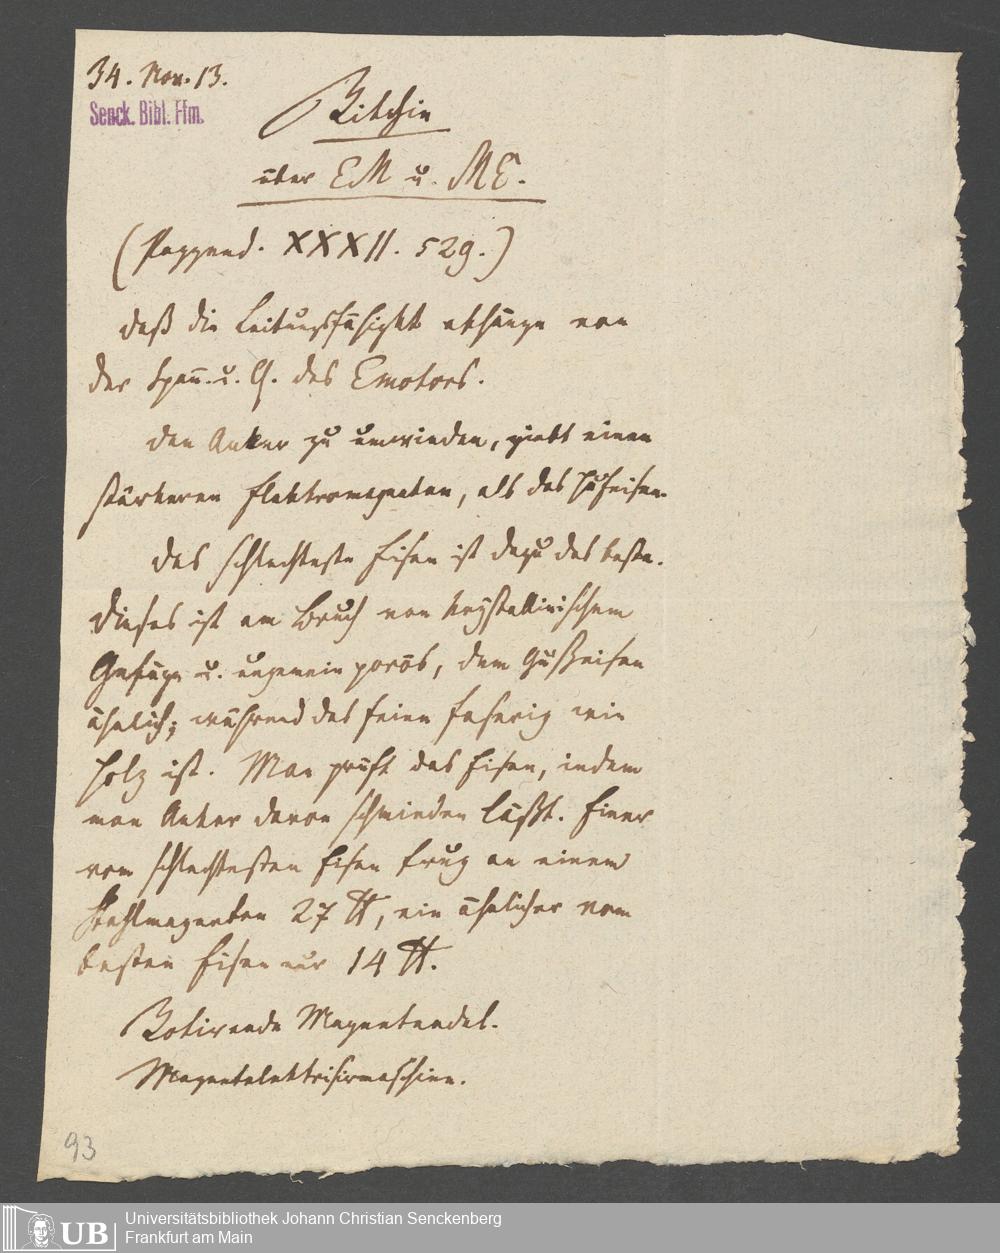 34. Nov. 13.
Senck. Bibl. Ffm.
Ritchie
über EM u. ME.
(Poggend. XXXII. 529.)
daß die Leitungsfähigkt abhänge von
der Span̄. u. Q. des Emotors.
den Anker zu umwinden, giebt einen
stärkeren Elektromagneten, als das Hufeisen.
das schlechteste Eisen ist dazu das beste.
dieses ist am Bruch von krystallinischem
Gefüge u. ungemein porös, dem Gußeisen
ähnlich; während das feine faserig wie
Holz ist. Man prüft das Eisen, indem
man Anker davon schmieden läßt. Einer
vom schlechtesten Eisen trug an einem
Stahlmagneten 27 ℔, ein ähnlicher vom
besten Eisen nur 14 ℔.
Rotirende Magnetnadel.
Magnetelektrisirmaschine.
93
UB
Universitätsbibliothek Johann Christian Senckenberg
Frankfurt am Main